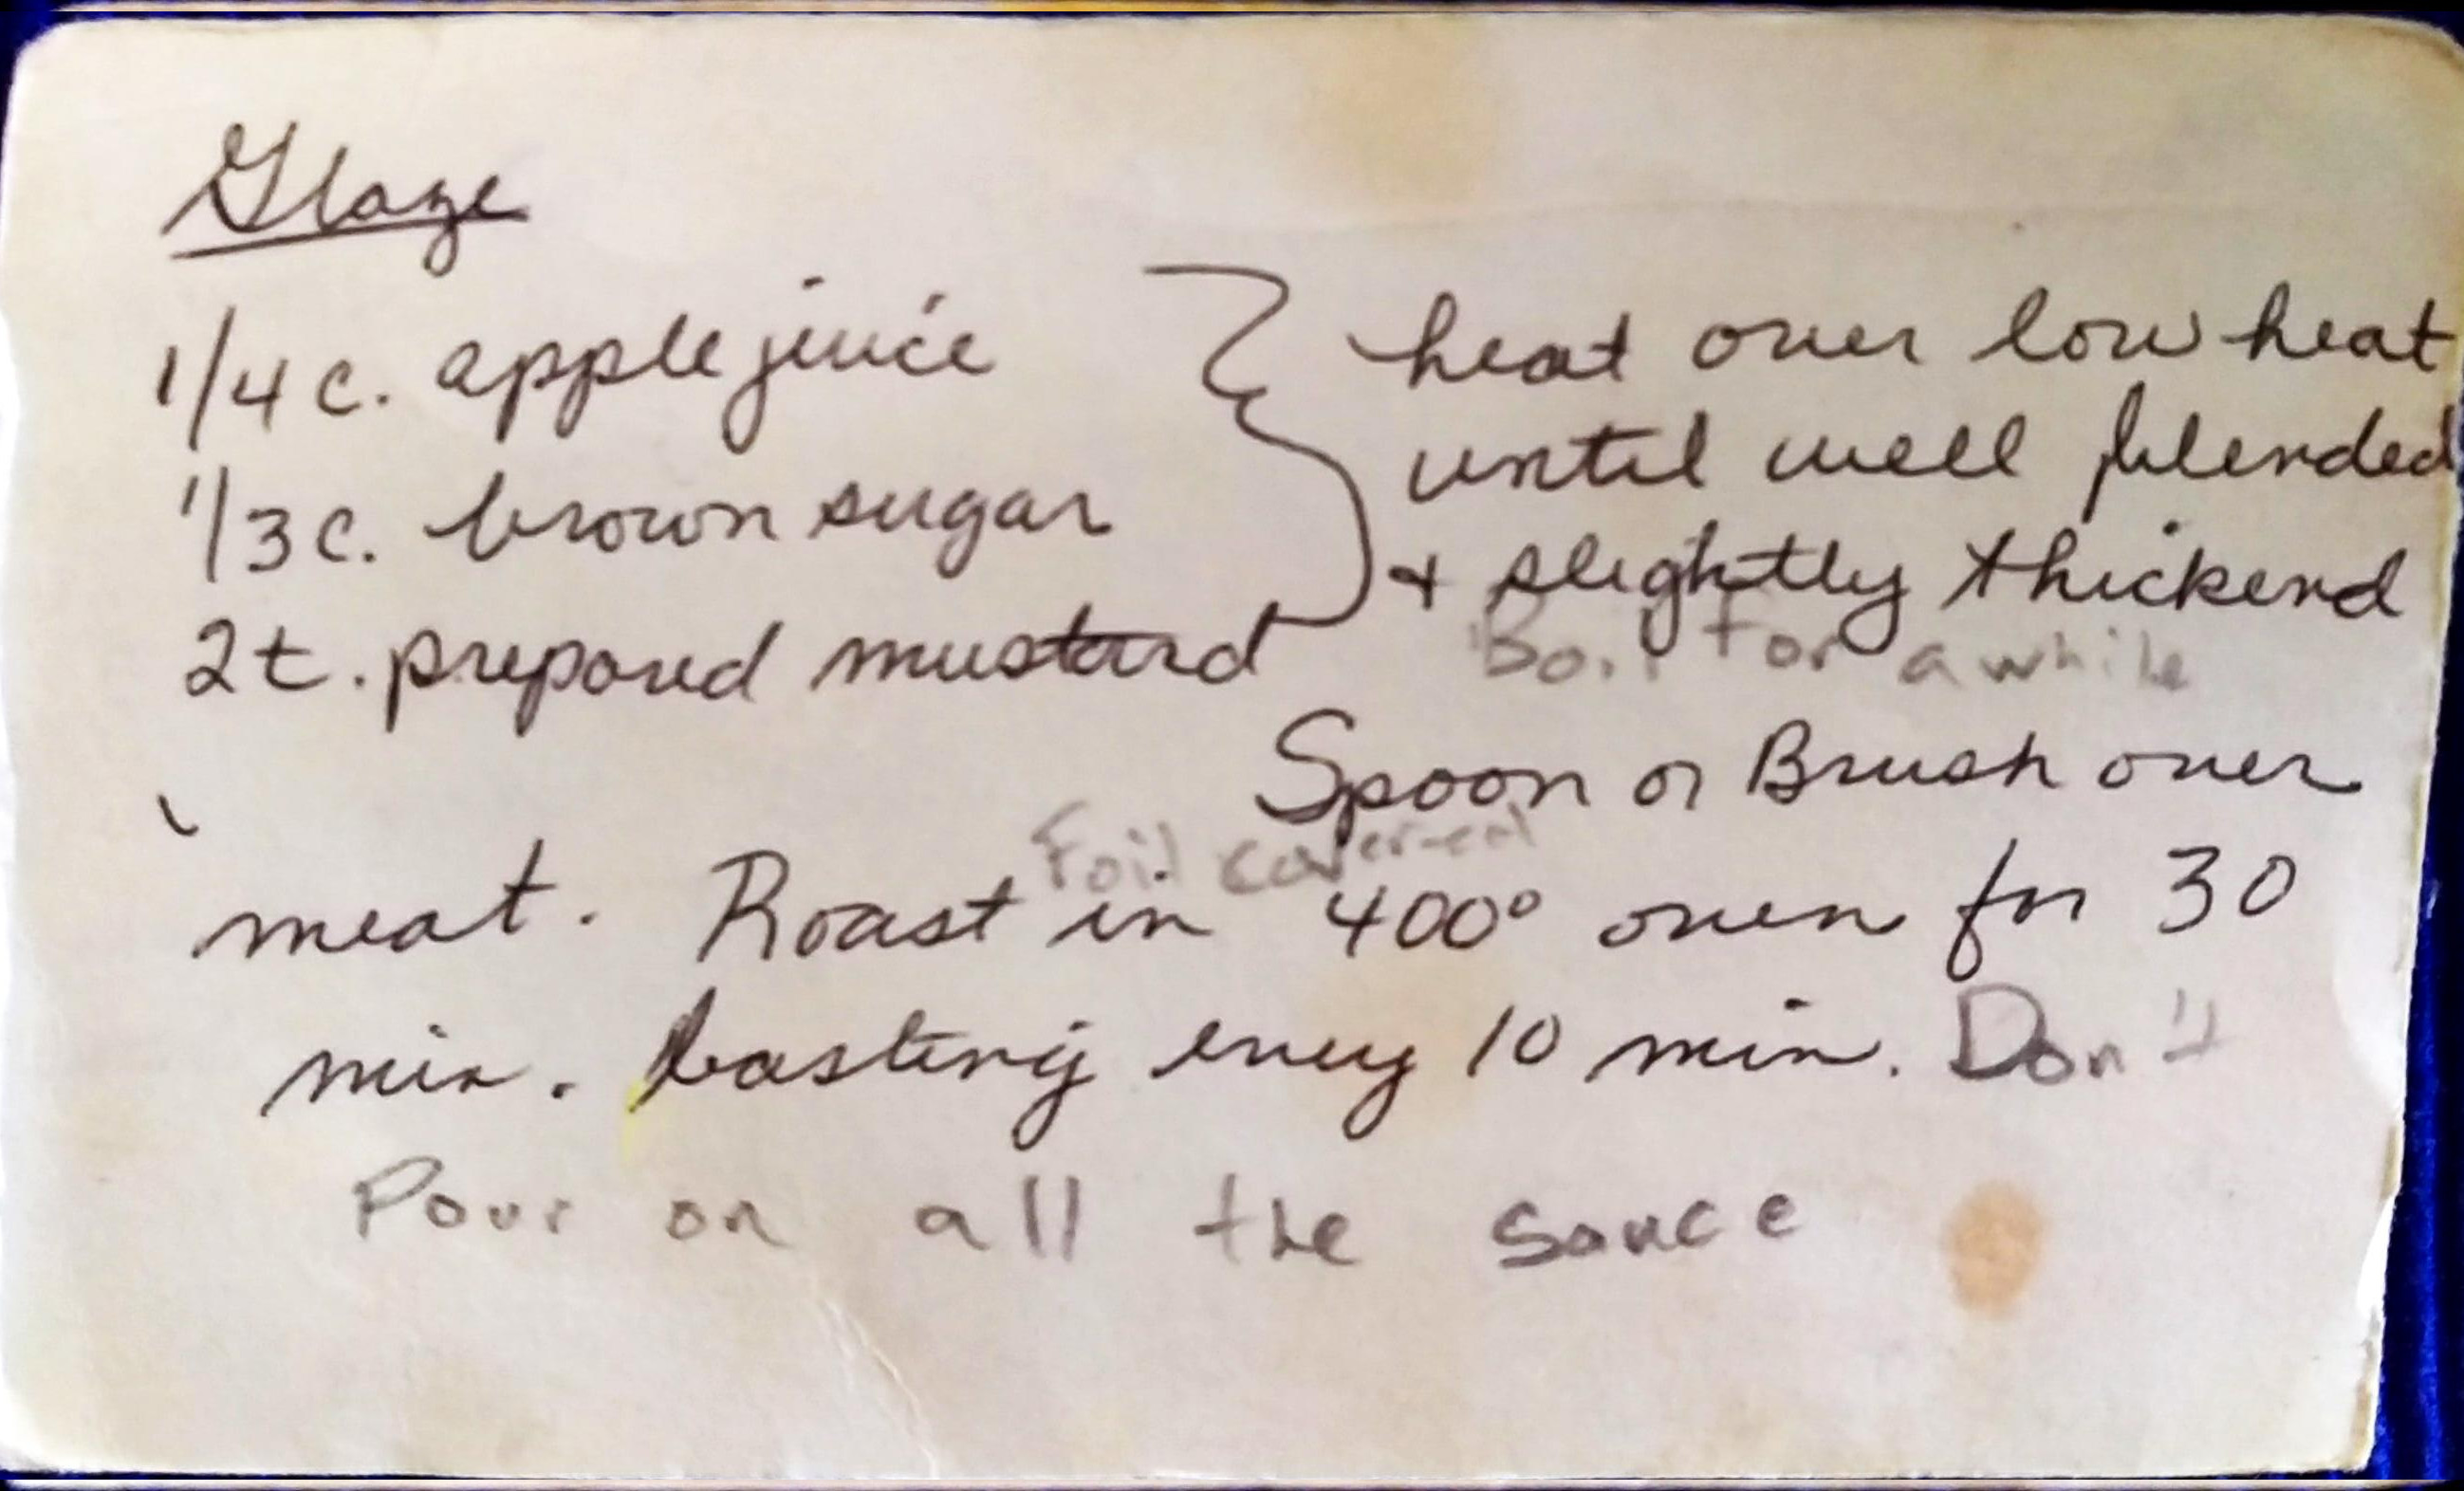 Glaze
1/4 c. apple juice
1/3 c. brown sugar
2 t. prepared mustard
heat over low heat
until well blended
+ slightly thickend
Boil For awhile
Spoon or Brush over
Foil covered
meat. Roast in 400° oven for 30
min. basting every 10 min. Don't
Pour on all the sauce